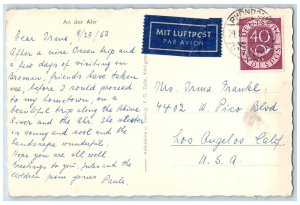 An der Ahr
Dear Irma 8/29/53
After a nice Ocean trip and
a few days of visiting in
Bremen, friends have taken
me, before I could proceed
to my hometown, on a
beautiful trip along the Rhine
River and the Ahr. The weather
is sunny and cool and the
landscape wonderful.
Hope you are all well
Greetings to you, Jules and the
children from yours Paula.
MIT LUFTPOST
PAR AVION
40
DEUTSCHE BUNDESPOST
Mrs. Irma Frankel
4402 W Pico Blvd
Los Angelos Calif.
U.S.A.